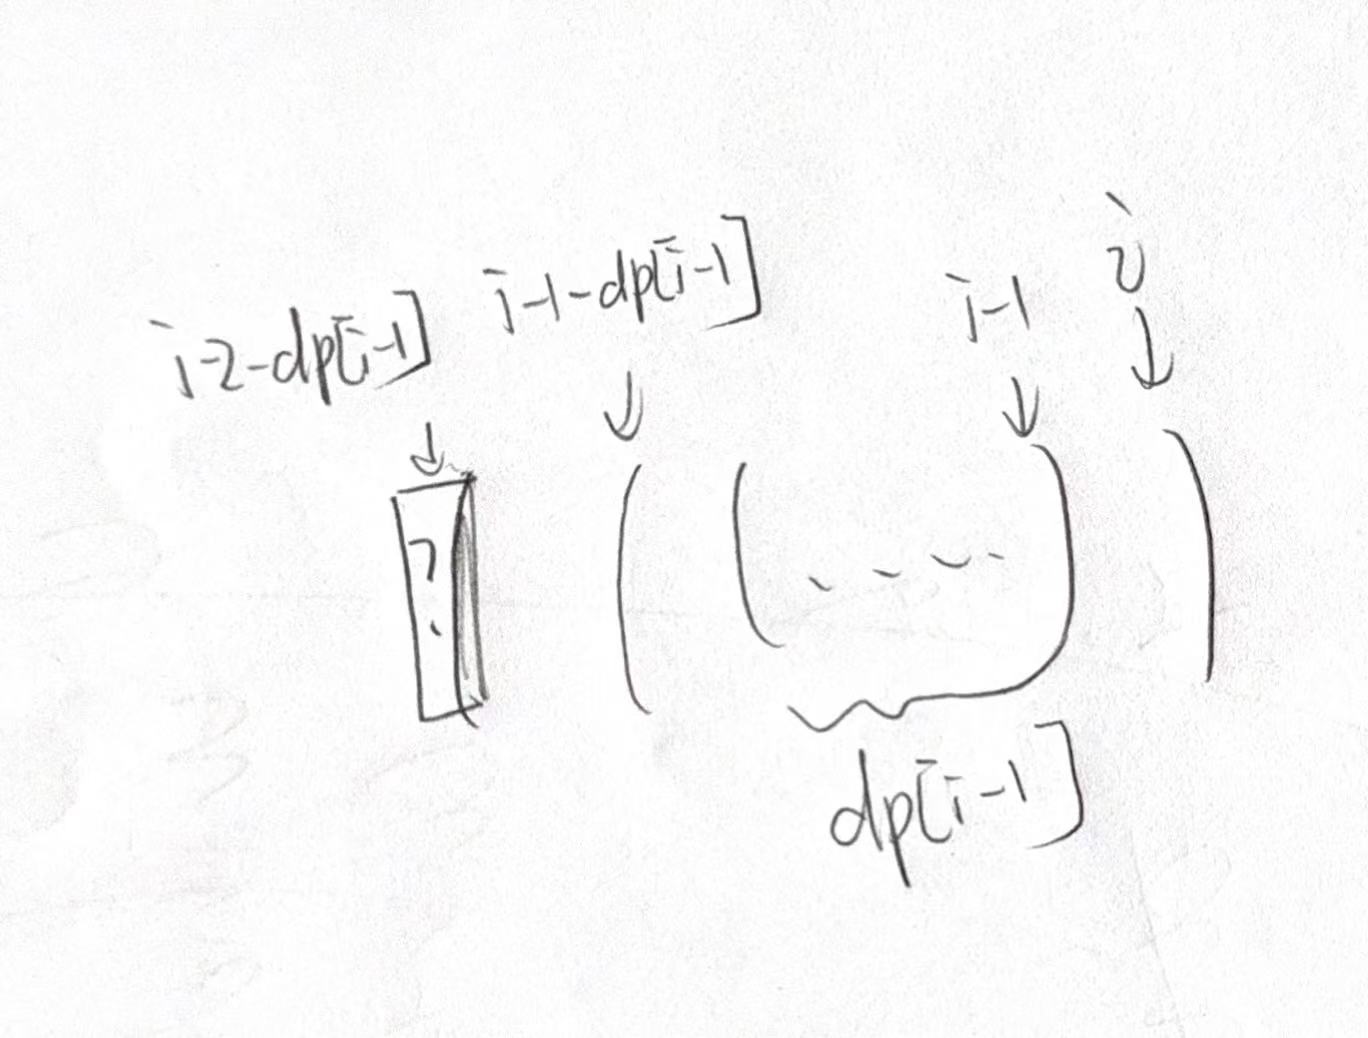 i-2-dp[i-1] i-1-dp[i-1] i-1 i
? ( ( .... ) )
dp[i-1]